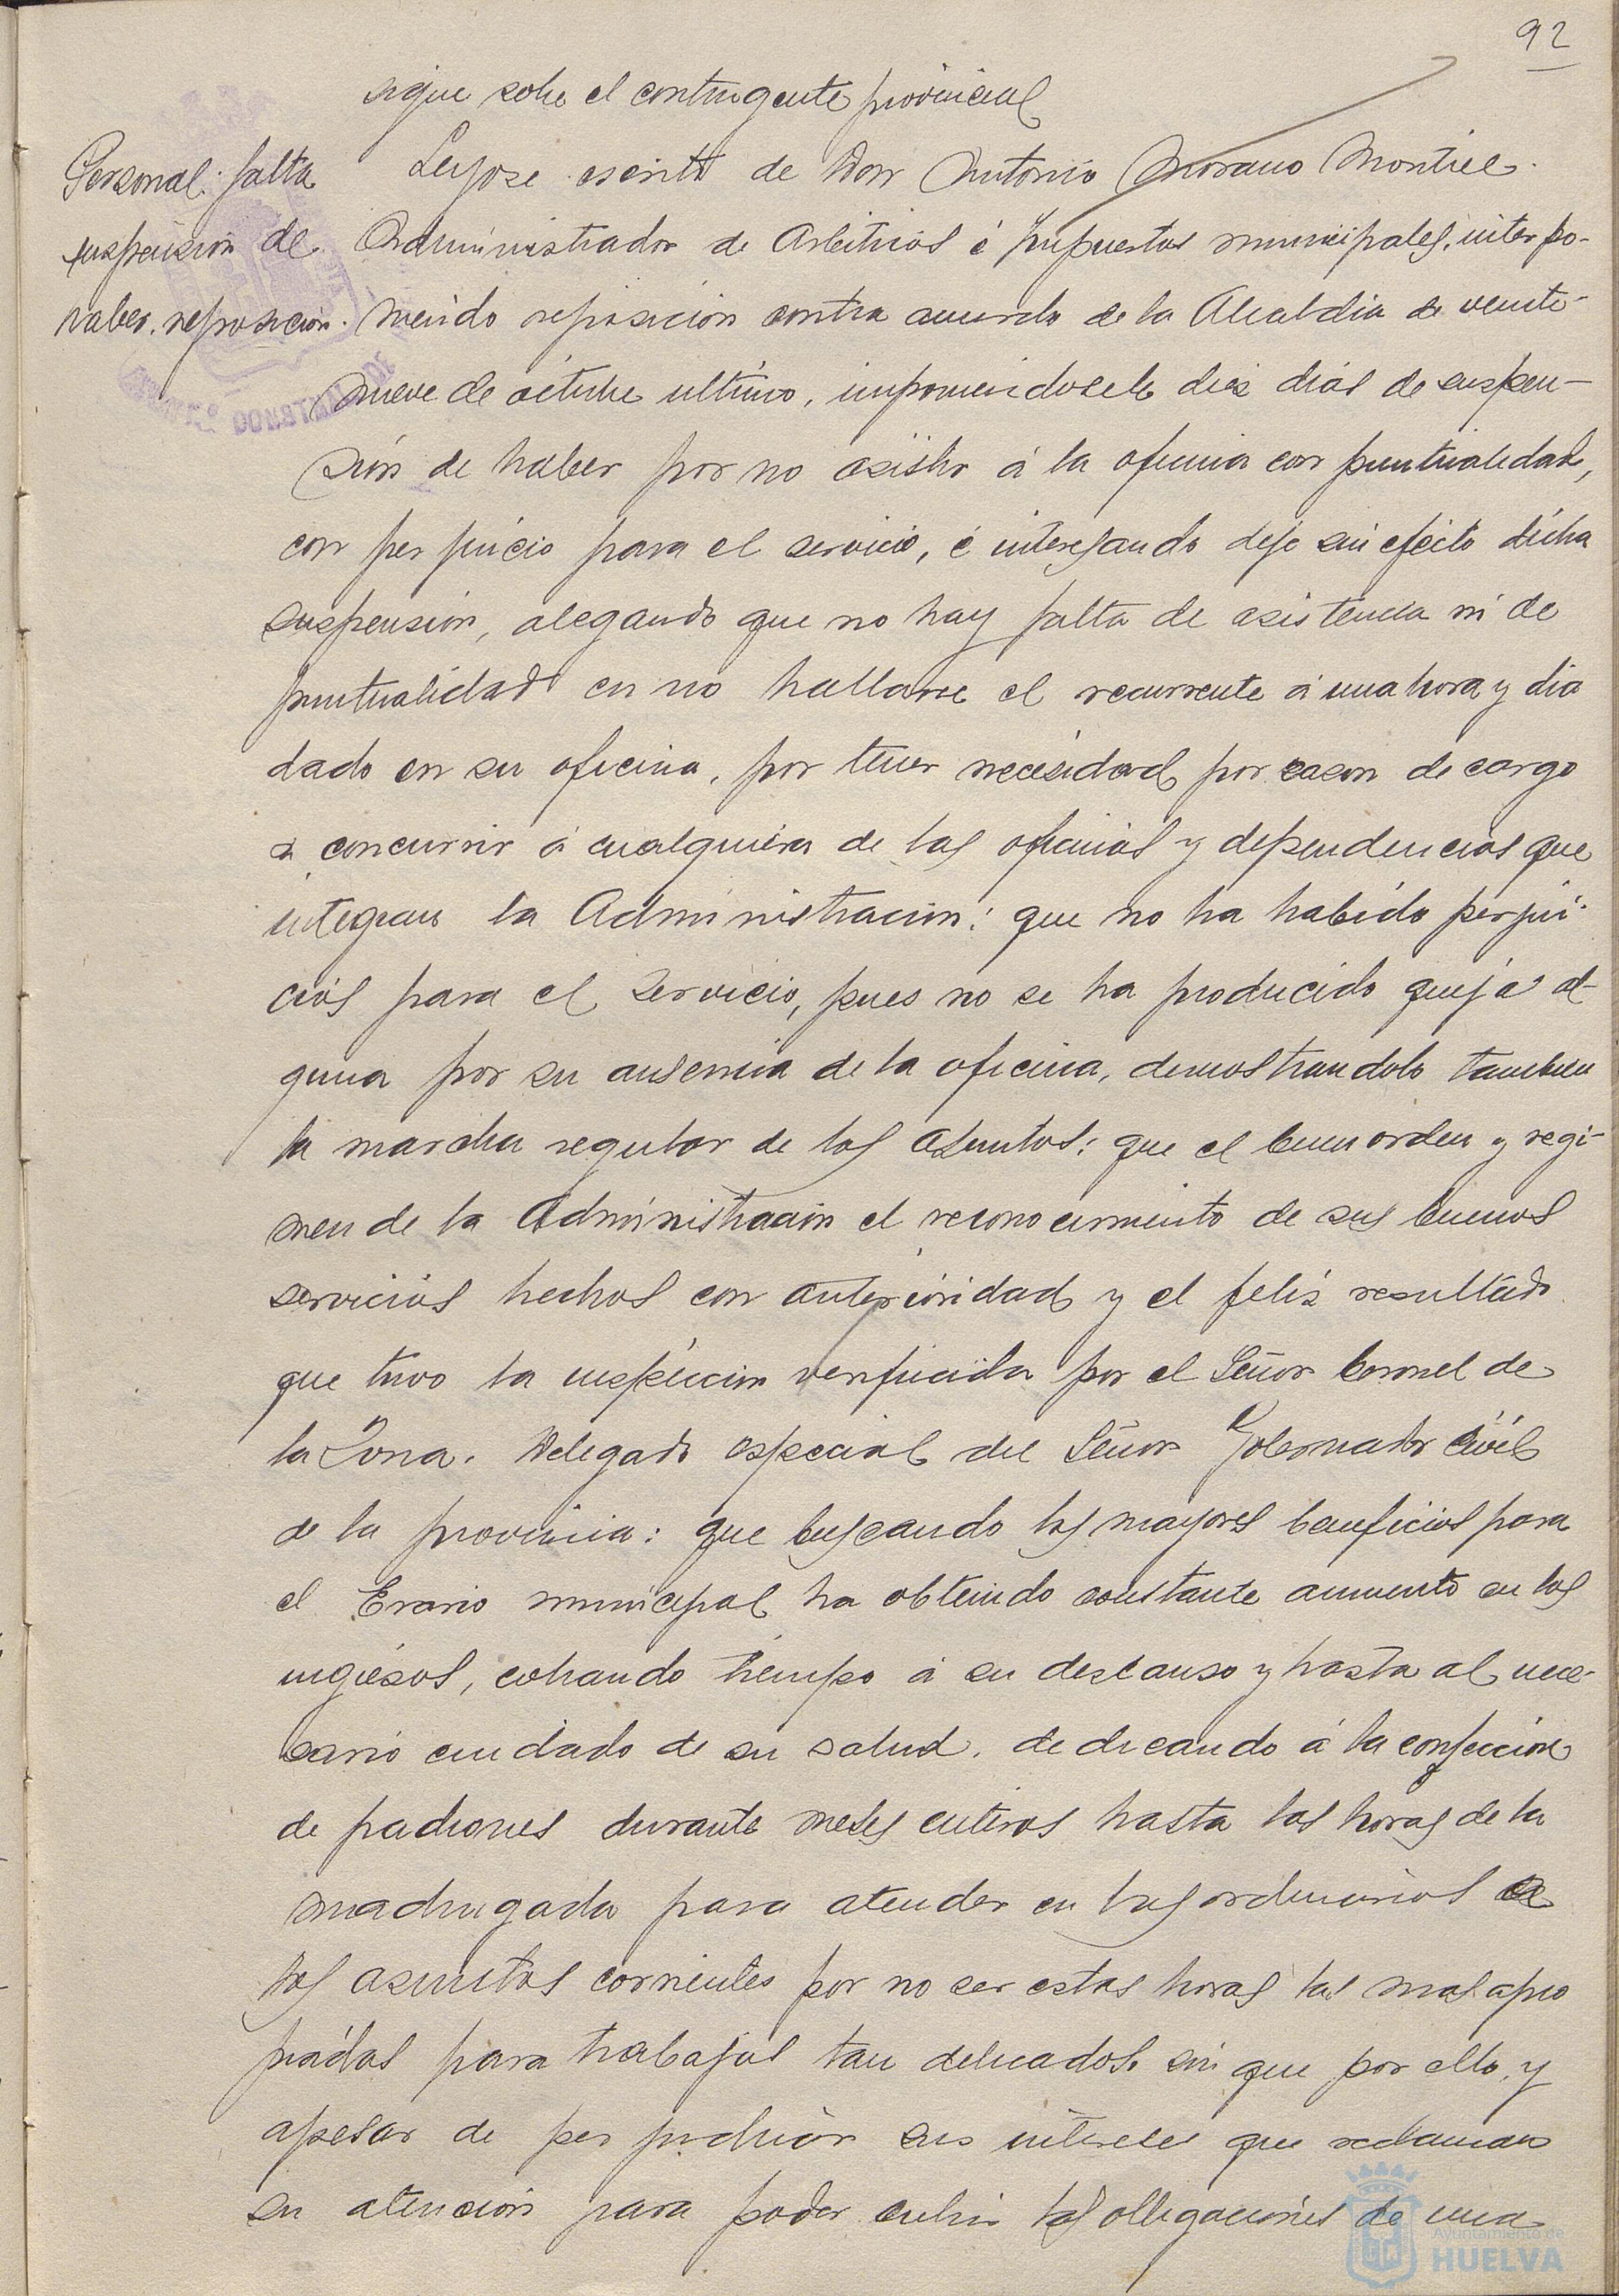 92
sigue sobre el contingente provincial
Personal. falta
suspensión de
haber. reposición.
Leyose escrito de Don Antonio Morano Montiel.
Administrador de Arbitrios é Impuestos municipales, interpo-
niendo reposicion contra acuerdo de la Alcaldia de veinte-
nueve de octubre ultimo, imponiendosele diez dias de suspen-
sión de haber por no asistir á la oficina con puntualidad,
con perjuicio para el servicio, é interesando deje sin efecto dicha
suspensión, alegando que no hay falta de asistencia ni de
puntualidad en no hallarse el recurrente á una hora y dia
dado en su oficina, por tener necesidad por razon de cargo
a concurrir á cualquiera de las oficinas y dependencias que
integran la Administracion: que no ha habido perjui-
cios para el servicio, pues no se ha producido queja al-
guna por su ausencia de la oficina, demostrandolo tambien
la marcha regular de los asuntos: que el buen orden y regi-
men de la Administracion el reconocimiento de sus buenos
servicios hechos con anterioridad y el feliz resultado
que tuvo la inspeccion verificada por el Señor Coronel de
la Zona. Delegado especial del Señor Gobernador Civil
de la provincia: que buscando los mayores beneficios para
el Erario municipal ha obtenido constante aumento en los
ingresos, robando tiempo á su descanso y hasta al nece-
sario cuidado de su salud. dedicando á la confección
de padrones durante meses enteros hasta las horas de la
madrugada para atender en las ordinarias a
los asuntos corrientes por no ser estas horas las mas apro
piadas para trabajos tan delicados. sin que por ello, y
apesar de perjudicar sus intereses que reclaman
su atencion para poder cubrir las obligaciones de una
Ayuntamiento de
HUELVA